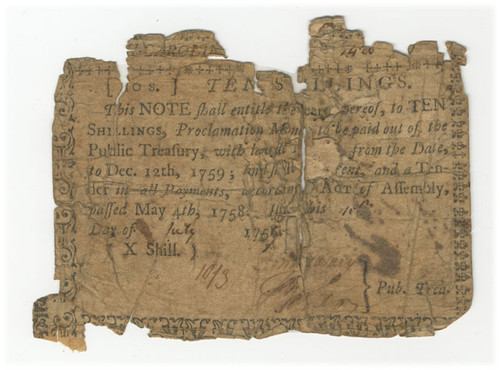 CAROLI
[10S.] TEN SHILLINGS.
This NOTE shall entitle the hereof, to TEN
SHILLINGS, Proclamation Mon to be paid out of the
Public Treasury, with from the Date,
to Dec. 12th, 1759; and a Ten-
der in all Payments, Act of Assembly,
passed May 4th, 1758. his
Day of July 175
X Shill.
Pub. Trea.